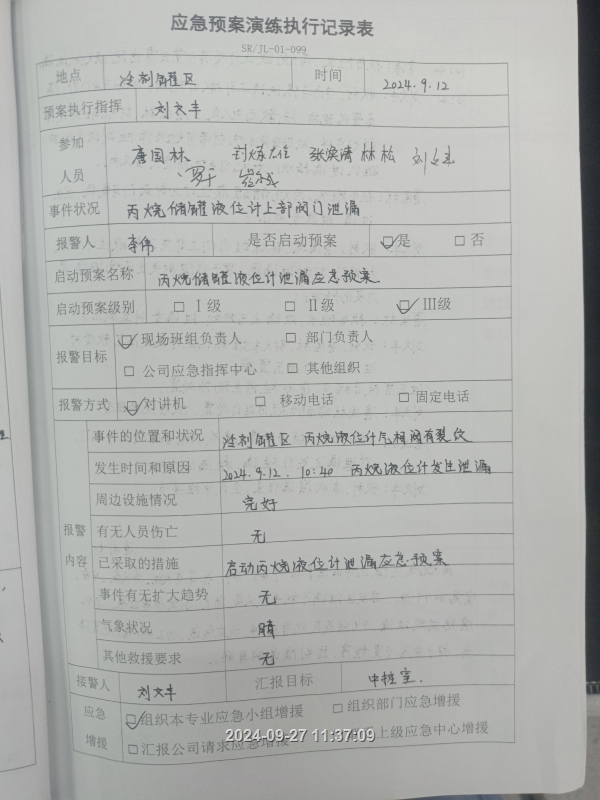 应急预案演练执行记录表
SR/JL-01-099
地点 冷剂罐区 时间 2024.9.12
预案执行指挥 刘文丰
参加人员 唐国林 张焕清 林松
罗干
事件状况 丙烷储罐液位计上部阀门泄漏
报警人 李伟 是否启动预案 ☑是 □否
启动预案名称 丙烷储罐液位计泄漏应急预案
启动预案级别 □Ⅰ级 □Ⅱ级 ☑Ⅲ级
报警目标 ☑现场班组负责人 □部门负责人
□公司应急指挥中心 □其他组织
报警方式 ☑对讲机 □移动电话 □固定电话
报警内容 事件的位置和状况 冷剂罐区 丙烷液位计气相阀有裂纹
发生时间和原因 2024.9.12. 10:40 丙烷液位计发生泄漏
周边设施情况 完好
有无人员伤亡 无
已采取的措施 启动丙烷液位计泄漏应急预案
事件有无扩大趋势 无
气象状况 晴
其他救援要求 无
接警人 刘文丰 汇报目标 中控室.
应急增援 ☑组织本专业应急小组增援 □组织部门应急增援
□汇报公司请求应急增援 上级应急中心增援
2024-09-27 11:37:09